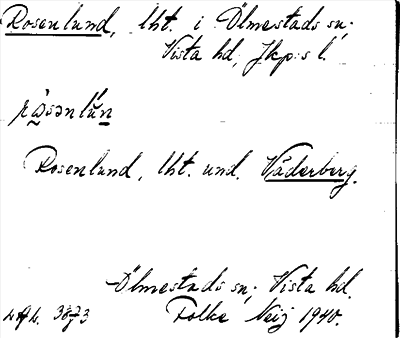 Rosenlund, lht. i Ölmestads sn;
Vista hd, Jkp:s l.
Rosenlund, lht. und. Väderberg.
Ölmestads sn; Vista hd.
3873 Folke Neij 1940.